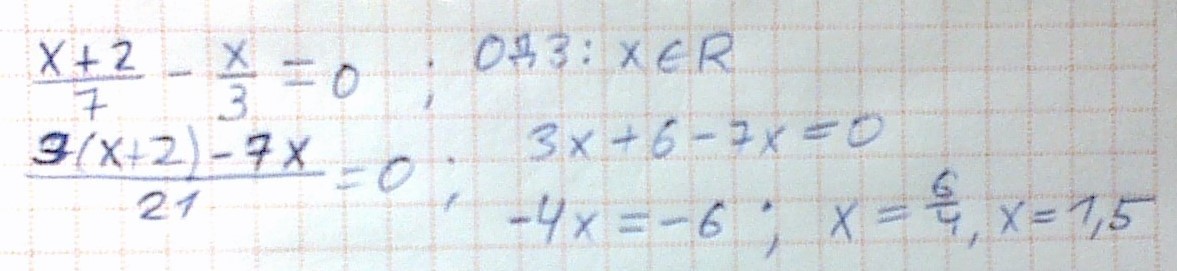 (x+2)/7 - x/3 = 0 ; ОДЗ: x∈R
(3(x+2)-7x)/21 = 0 ; 3x+6-7x=0
-4x=-6 ; x=6/4, x=1,5